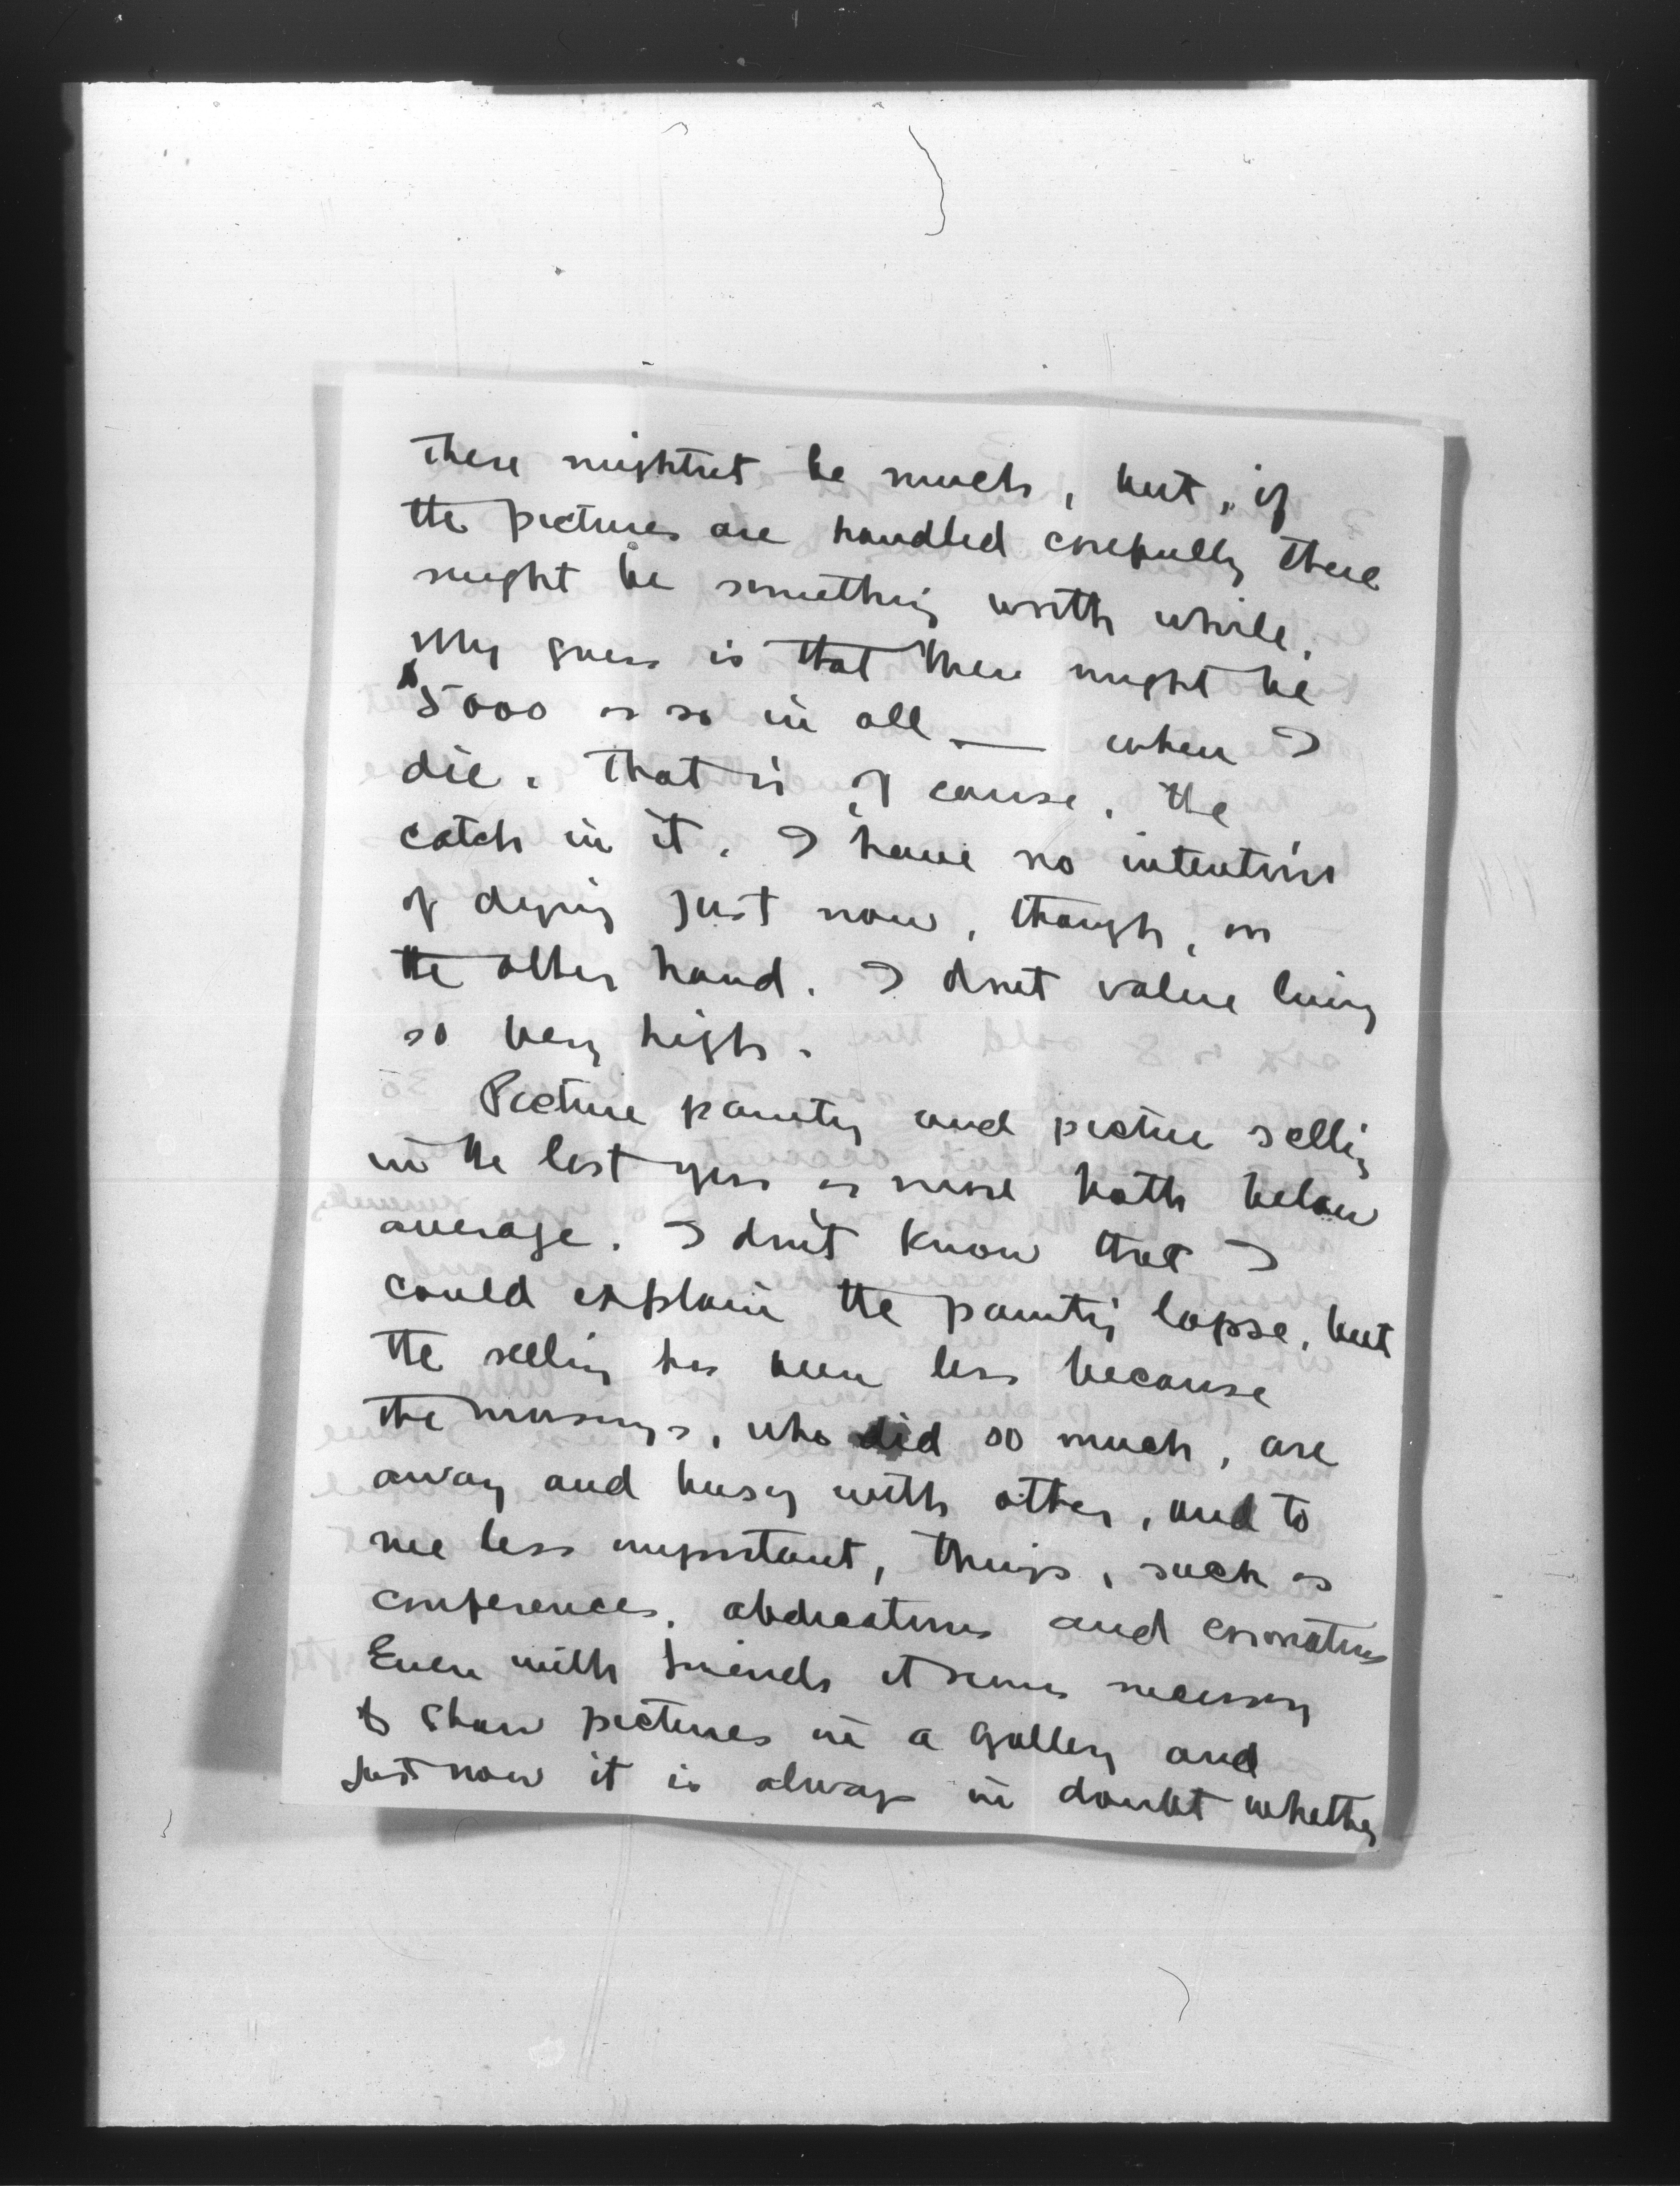 There mightnt be much, but, if
the pictures are handled carefully there
might be something worth while.
My guess is that there might be
$5000 or so in all — when I
die. That is, of course, the
catch in it. I have no intention
of dying just now, though, on
the other hand. I dont value living
so very high.
Picture painting and picture selling
in the last year or more both below
average. I don't know that I
could explain the painting lapse, but
the selling has been less because
the Masseys, who did so much, are
away and busy with other, and to
me less important, things, such as
conferences, abdications and coronations
Even with friends it seems necessary
to show pictures in a gallery and
just now it is always in doubt whether